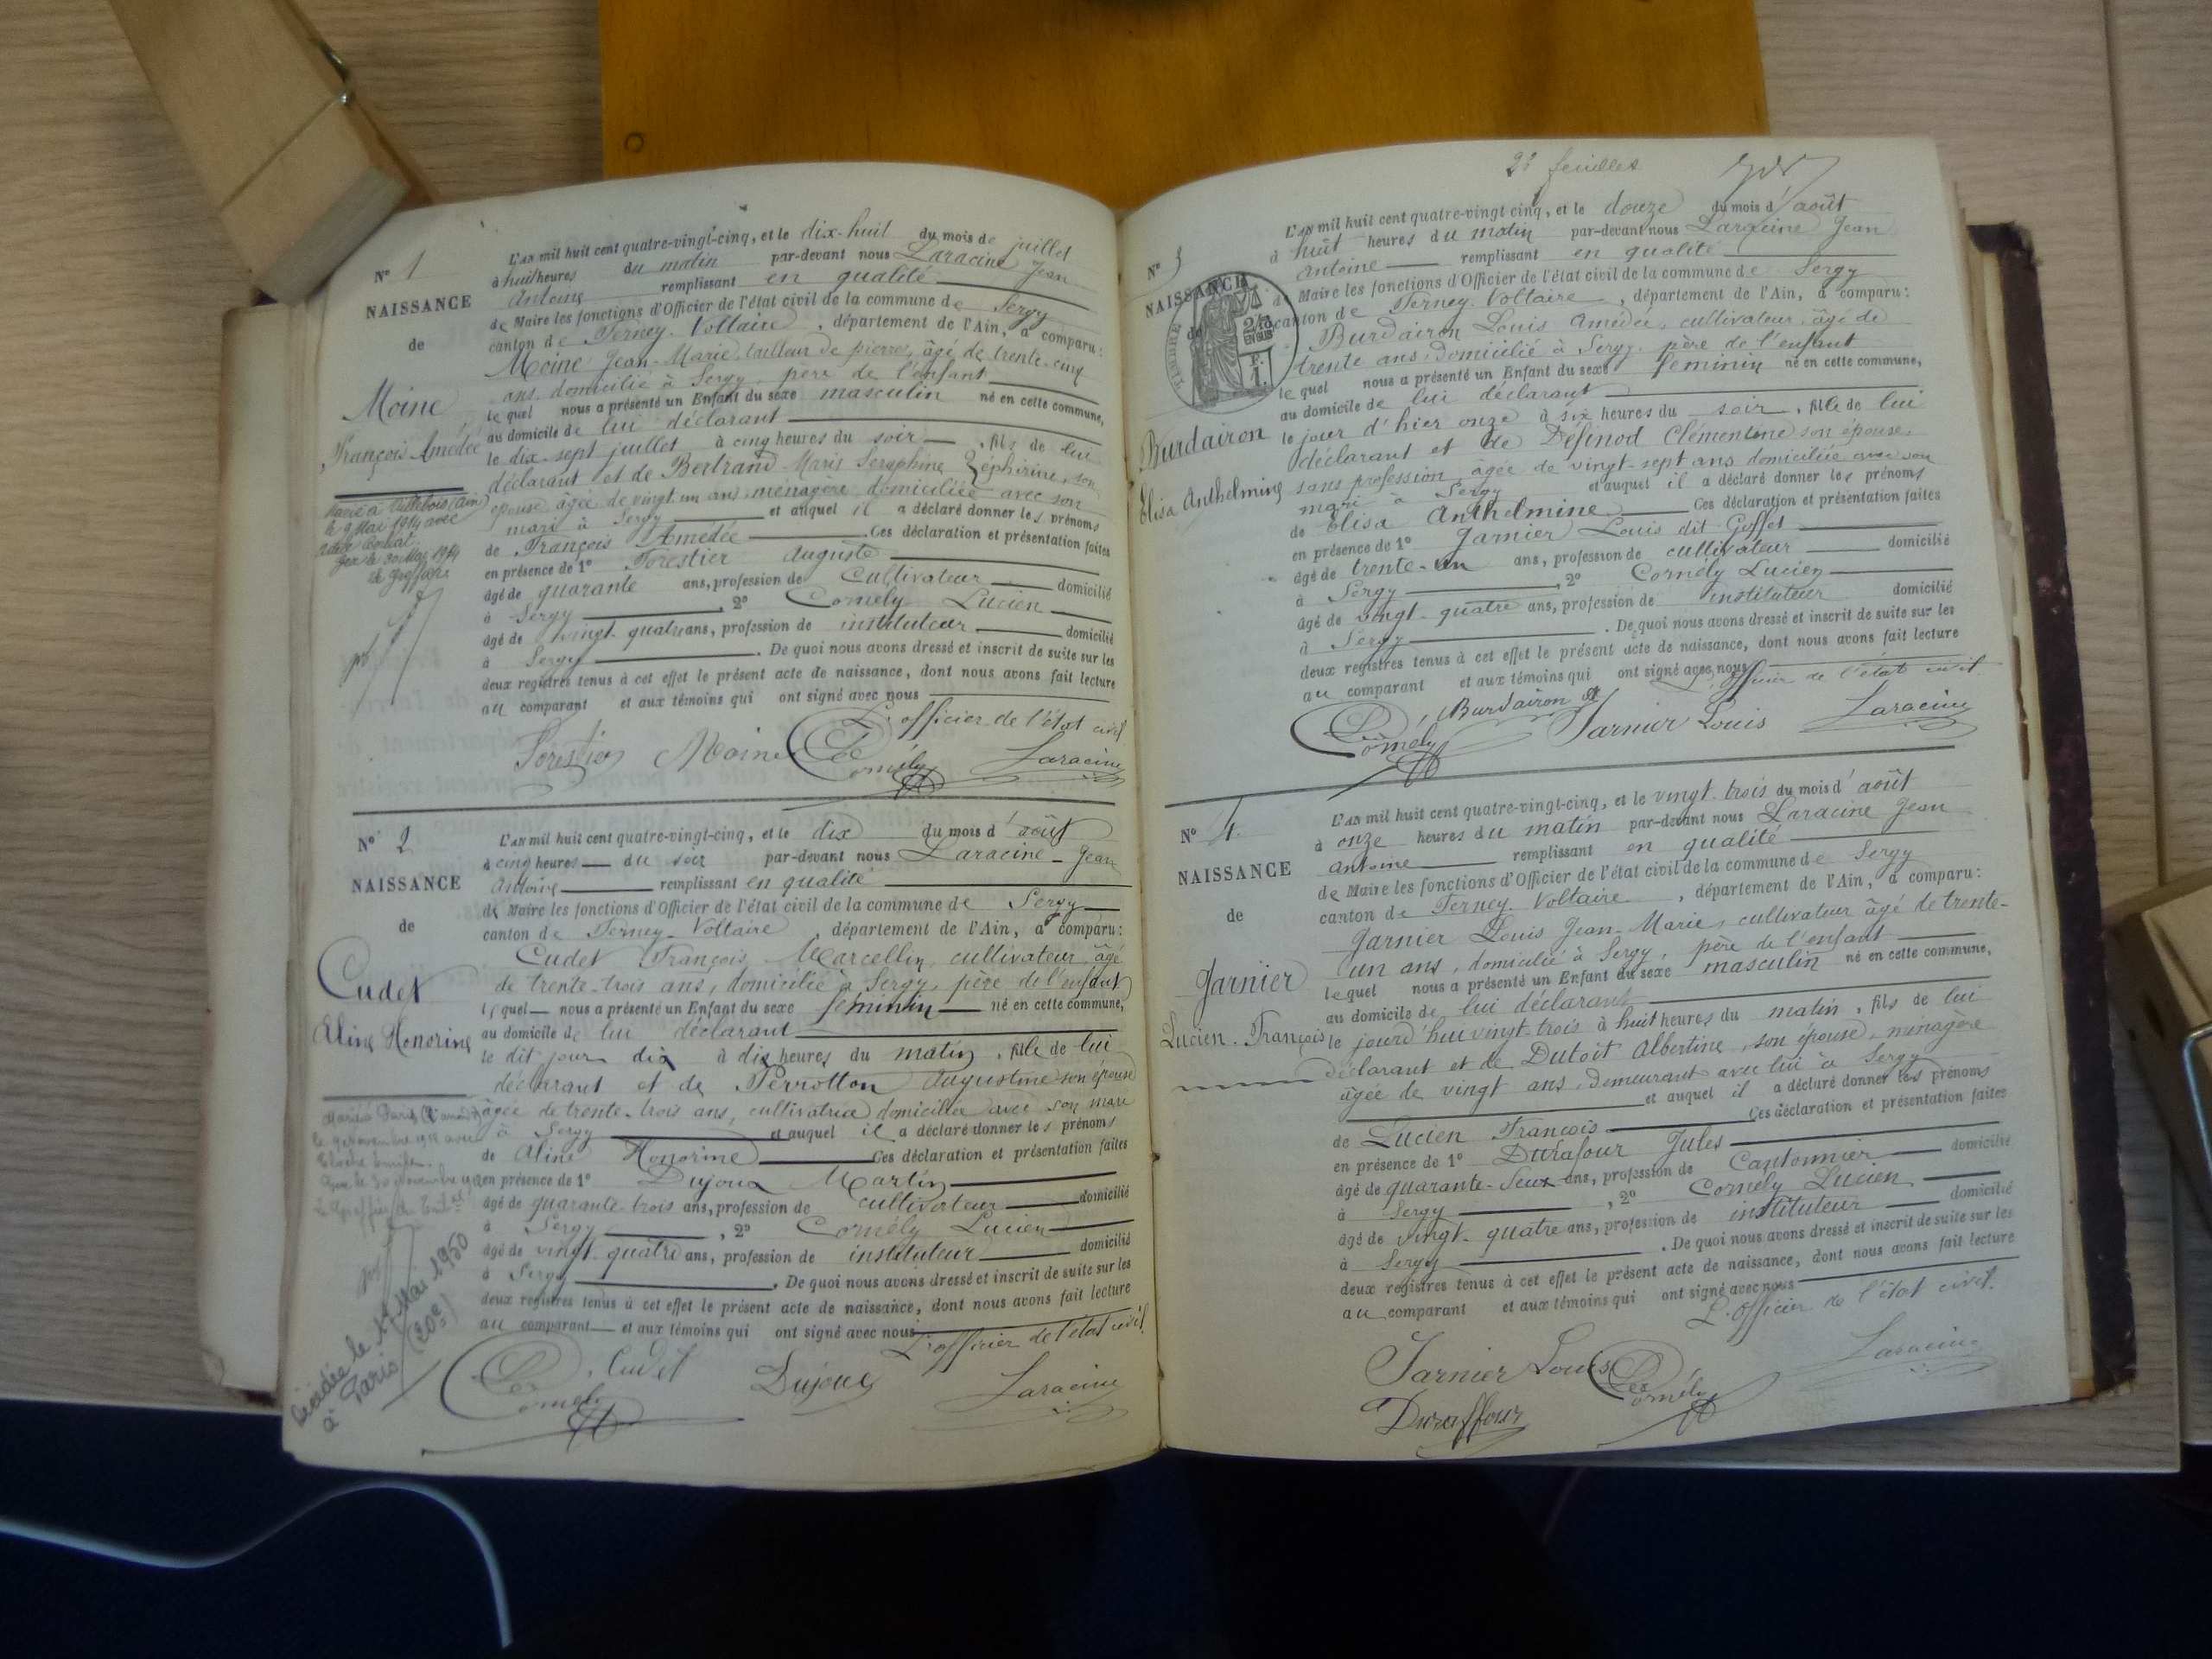 N° 1
NAISSANCE
de
Moine
François Amédée
Marié à Villebois (Ain)
le 9 Mai 1914 avec
Gex le 30 Mai 1914
Le Greffier
L'an mil huit cent quatre-vingt-cinq, et le dix-huit du mois de juillet
à huit heures du matin par-devant nous Laracine Jean
Antoine remplissant en qualité
de Maire les fonctions d'Officier de l'état civil de la commune de Sergy
canton de Ferney-Voltaire, département de l'Ain, a comparu:
Moine Jean-Marie, tailleur de pierres, âgé de trente-cinq
ans, domicilié à Sergy, père de l'enfant
lequel nous a présenté un Enfant du sexe masculin né en cette commune,
au domicile de lui déclarant
le dix-sept juillet à cinq heures du soir, fils de lui
déclarant et de Bertrand Marie Seraphine Zéphirine, son
épouse, âgée de vingt un ans, ménagère, domiciliée avec son
mari à Sergy et auquel il a déclaré donner les prénoms
de François Amédée Ces déclaration et présentation faites
en présence de 1° Forestier Auguste
âgé de quarante ans, profession de Cultivateur domicilié
à Sergy, 2° Comély Lucien
âgé de vingt-quatre ans, profession de instituteur domicilié
à Sergy. De quoi nous avons dressé et inscrit de suite sur les
deux registres tenus à cet effet le présent acte de naissance, dont nous avons fait lecture
au comparant et aux témoins qui ont signé avec nous
L'officier de l'état civil
Forestier Moine Comély Laracine
N° 2
NAISSANCE
de
Cudet
Aline Honorine
Mariée à Paris
le 9 novembre
Décédée le
Mai 1950
à Paris (20e)
L'an mil huit cent quatre-vingt-cinq, et le dix du mois d'août
à cinq heures du soir par-devant nous Laracine Jean
Antoine remplissant en qualité
de Maire les fonctions d'Officier de l'état civil de la commune de Sergy
canton de Ferney-Voltaire, département de l'Ain, a comparu:
Cudet François Marcellin, cultivateur, âgé
de trente-trois ans, domicilié à Sergy, père de l'enfant
lequel nous a présenté un Enfant du sexe féminin né en cette commune,
au domicile de lui déclarant
le dit jour dix à dix heures du matin, fille de lui
déclarant et de Perrollon Augustine son épouse
âgée de trente-trois ans, cultivatrice domiciliée avec son mari
à Sergy et auquel il a déclaré donner les prénoms
de Aline Honorine Ces déclaration et présentation faites
en présence de 1° Dujoux Martin
âgé de quarante-trois ans, profession de cultivateur domicilié
à Sergy, 2° Comély Lucien
âgé de vingt-quatre ans, profession de instituteur domicilié
à Sergy. De quoi nous avons dressé et inscrit de suite sur les
deux registres tenus à cet effet le présent acte de naissance, dont nous avons fait lecture
au comparant et aux témoins qui ont signé avec nous
L'officier de l'état civil
Comély Cudet Dujoux Laracine
2e feuillet
N° 3
NAISSANCE
de
TIMBRE
2/10
EN SUS
F.
1.
Burdairon
Elisa Anthelmine
L'an mil huit cent quatre-vingt-cinq, et le douze du mois d'août
à huit heures du matin par-devant nous Laracine Jean
Antoine remplissant en qualité
de Maire les fonctions d'Officier de l'état civil de la commune de Sergy
canton de Ferney-Voltaire, département de l'Ain, a comparu:
Burdairon Louis Amédée, cultivateur, âgé de
trente ans, domicilié à Sergy, père de l'enfant
lequel nous a présenté un Enfant du sexe féminin né en cette commune,
au domicile de lui déclarant
le jour d'hier onze à six heures du soir, fille de lui
déclarant et de Définod Clémentine son épouse,
sans profession, âgée de vingt-sept ans domiciliée avec son
mari à Sergy et auquel il a déclaré donner les prénoms
de Elisa Anthelmine Ces déclaration et présentation faites
en présence de 1° Garnier Louis dit Goffet
âgé de trente-un ans, profession de cultivateur domicilié
à Sergy, 2° Comély Lucien
âgé de vingt-quatre ans, profession de instituteur domicilié
à Sergy. De quoi nous avons dressé et inscrit de suite sur les
deux registres tenus à cet effet le présent acte de naissance, dont nous avons fait lecture
au comparant et aux témoins qui ont signé avec nous
L'officier de l'état civil
Comély Burdairon Garnier Louis Laracine
N° 4
NAISSANCE
de
Garnier
Lucien-François
L'an mil huit cent quatre-vingt-cinq, et le vingt-trois du mois d'août
à onze heures du matin par-devant nous Laracine Jean
Antoine remplissant en qualité
de Maire les fonctions d'Officier de l'état civil de la commune de Sergy
canton de Ferney-Voltaire, département de l'Ain, a comparu:
Garnier Louis Jean-Marie, cultivateur âgé de trente-
un ans, domicilié à Sergy, père de l'enfant
lequel nous a présenté un Enfant du sexe masculin né en cette commune,
au domicile de lui déclarant
le jourd'hui vingt-trois à huit heures du matin, fils de lui
déclarant et de Dutoit Albertine, son épouse, ménagère
âgée de vingt ans, demeurant avec lui à Sergy
et auquel il a déclaré donner les prénoms
de Lucien François Ces déclaration et présentation faites
en présence de 1° Durafour Jules
âgé de quarante-deux ans, profession de Cantonnier domicilié
à Sergy, 2° Comély Lucien
âgé de vingt-quatre ans, profession de instituteur domicilié
à Sergy. De quoi nous avons dressé et inscrit de suite sur les
deux registres tenus à cet effet le présent acte de naissance, dont nous avons fait lecture
au comparant et aux témoins qui ont signé avec nous
L'Officier de l'état civil.
Garnier Louis Comély Laracine
Duraffour